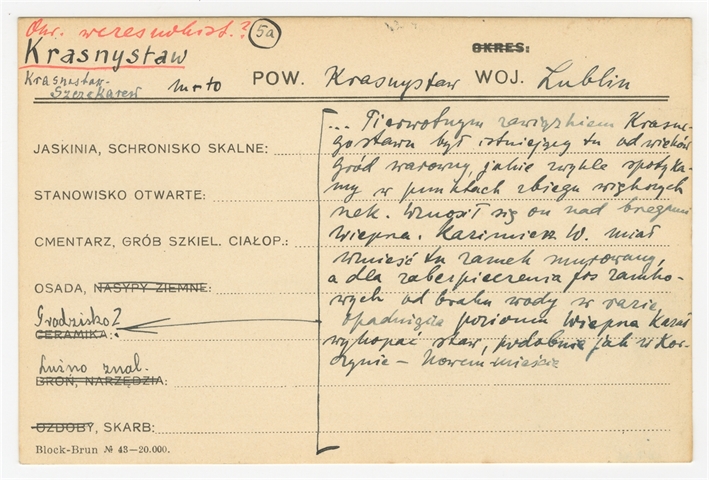 Okr. wczesnohist.? 5a
Krasnystaw OKRES:
Krasnystaw-
Szczekarew m-to POW. Krasnystaw WOJ. Lublin
JASKINIA, SCHRONISKO SKALNE:
STANOWISKO OTWARTE:
CMENTARZ, GRÓB SZKIEL. CIAŁOP.:
OSADA, NASYPY ZIEMNE:
Grodzisko?
CERAMIKA:
Luźno znal.
BROŃ, NARZĘDZIA:
OZDOBY, SKARB:
Block-Brun № 43—20.000.
... Pierwotnym zawiązkiem Krasne-
gostawu był istniejący tu od wieków
gród warowny, jakie zwykle spotyka-
my w punktach zbiegu większych
rzek. Wznosił się on nad brzegami
Wieprza. Kazimierz W. miał
wznieść tu zamek murowany,
a dla zabezpieczenia fos zamko-
wych od braku wody w razie
opadnięcia poziomu Wieprza kazał
wykopać staw, podobnie jak w Kor-
czynie — Nowem-mieście